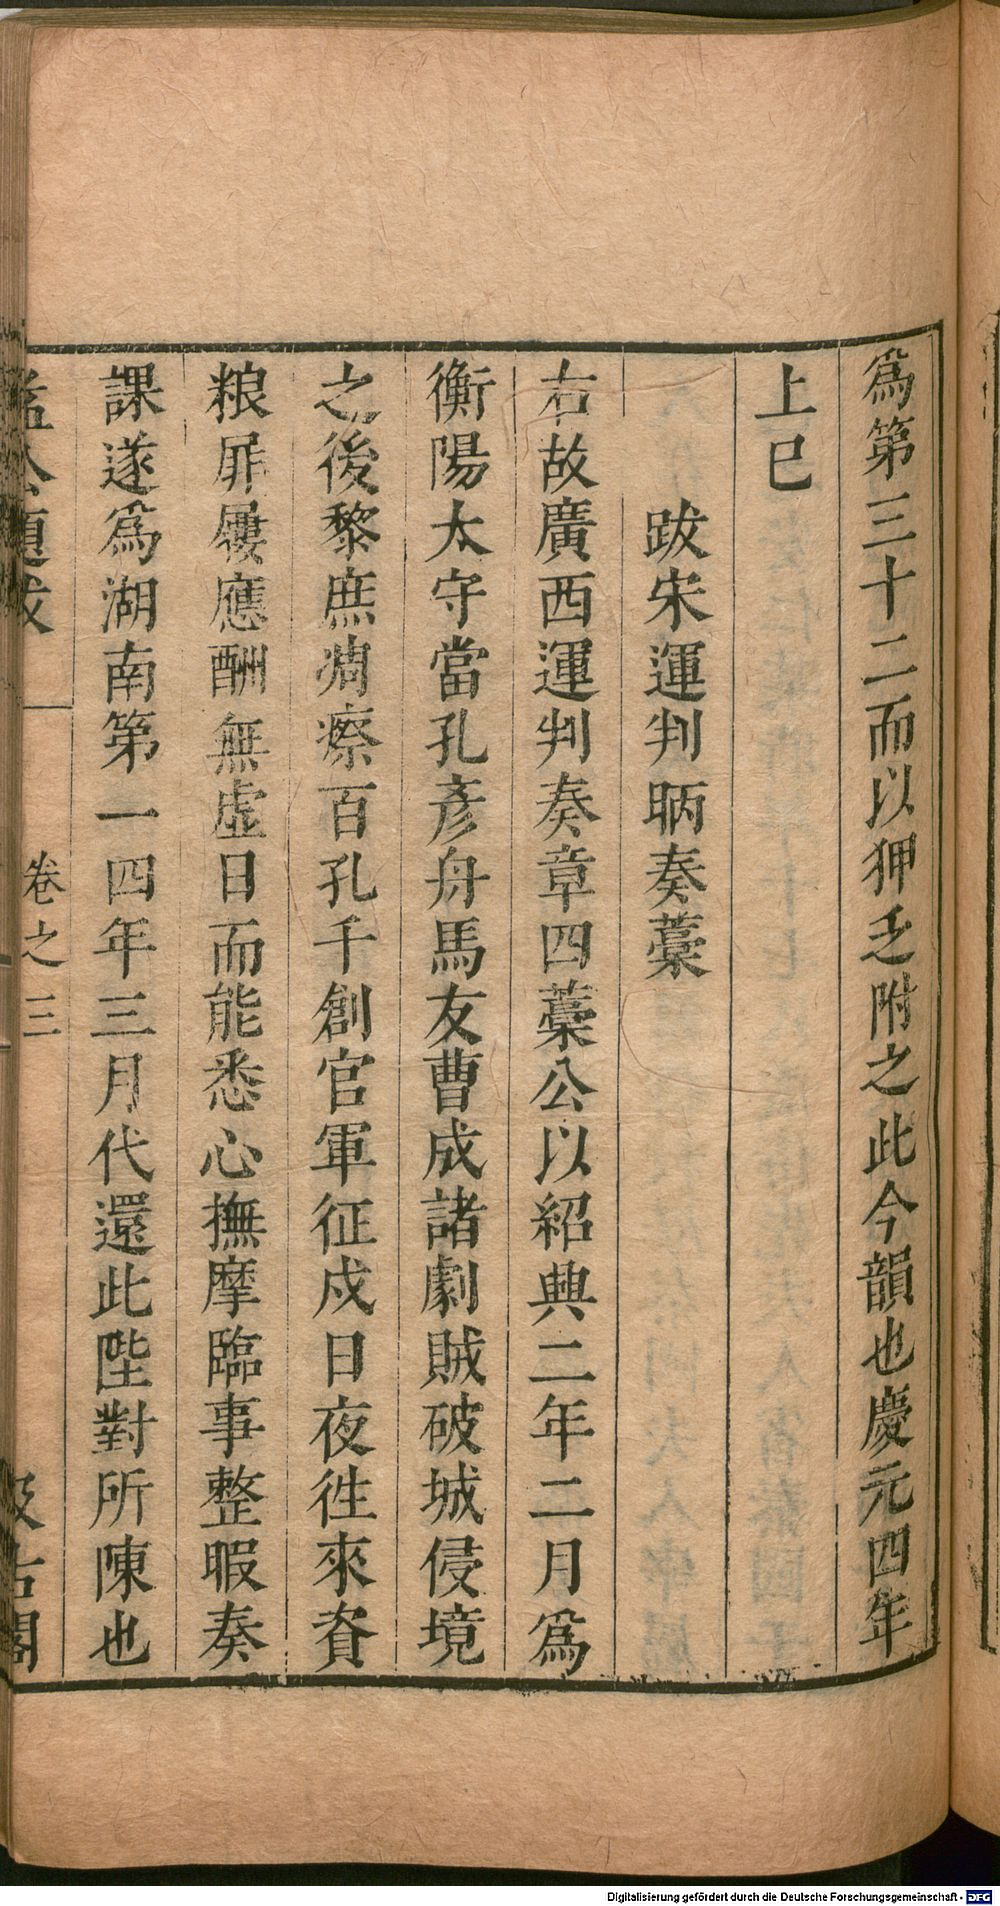 爲第三十二而以狎乏附之此今韻也慶元四年
上巳
跋宋運判昞奏藁
右故廣西運判奏章四藁公以紹興二年二月爲
衡陽太守當孔彥舟馬友曹成諸劇賊破城侵境
之後黎庶凋瘵百孔千創官軍征戍日夜徃來資
粮屝屨應酬無虚日而能悉心撫摩臨事整暇奏
課遂爲湖南第一四年三月代還此陛對所陳也
益公題跋
卷之三
汲古閣
Digitalisierung gefördert durch die Deutsche Forschungsgemeinschaft - DFG